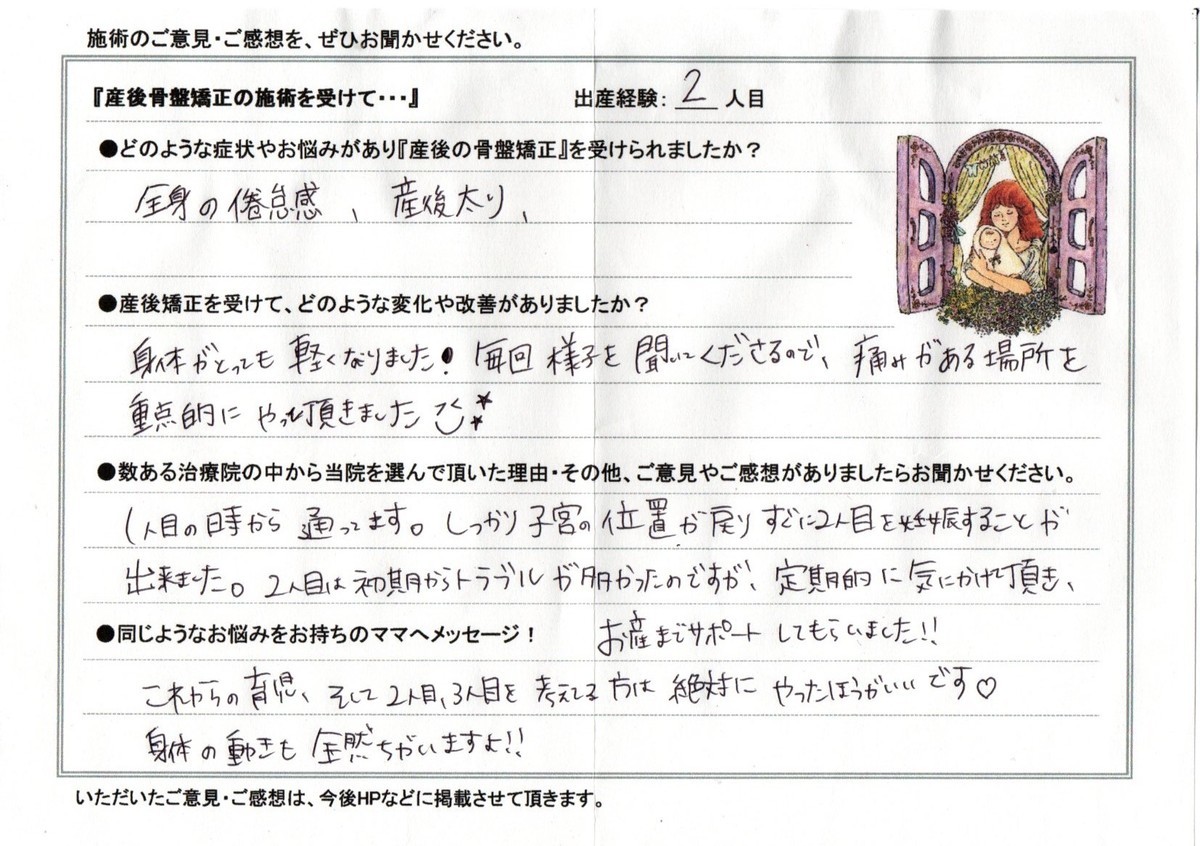 施術のご意見・ご感想を、ぜひお聞かせください。
『産後骨盤矯正の施術を受けて・・・』 出産経験： 2 人目
●どのような症状やお悩みがあり『産後の骨盤矯正』を受けられましたか？
全身の倦怠感、産後太り、
●産後矯正を受けて、どのような変化や改善がありましたか？
身体がとっても軽くなりました！毎回様子を聞いてくださるので、痛みがある場所を
重点的にやって頂きました
●数ある治療院の中から当院を選んで頂いた理由・その他、ご意見やご感想がありましたらお聞かせください。
1人目の時から通ってます。しっかり子宮の位置が戻りすぐに2人目を妊娠することが
出来ました。2人目は初期からトラブルが多かったのですが、定期的に気にかけて頂き、
お産までサポートしてもらいました!!
●同じようなお悩みをお持ちのママへメッセージ！
これからの育児、そして2人目、3人目を考えてる方は絶対にやったほうがいいです♡
身体の動きも全然ちがいますよ!!
いただいたご意見・ご感想は、今後HPなどに掲載させて頂きます。